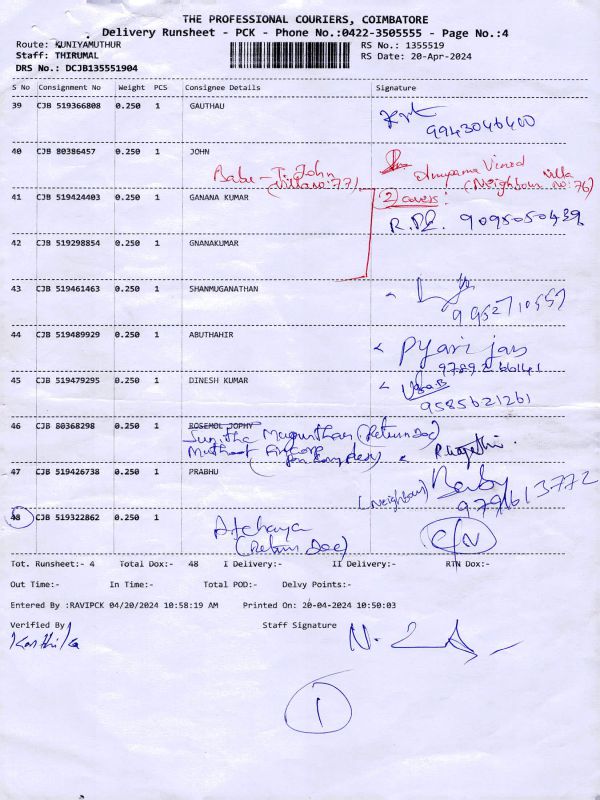 THE PROFESSIONAL COURIERS, COIMBATORE
Delivery Runsheet - PCK - Phone No.:0422-3505555 - Page No.:4
Route: KUNIYAMUTHUR
RS No.: 1355519
Staff: THIRUMAL
RS Date: 20-Apr-2024
DRS No.: DCJB135551904
S No Consignment No Weight PCS Consignee Details Signature
39 CJB 519366808 0.250 1 GAUTHAU
9943046400
40 CJB 80386457 0.250 1 JOHN
Babu - T. John Vinod
(Villa no: 77) (Neighbour Villa no: 76)
41 CJB 519424403 0.250 1 GANANA KUMAR 2 covers:
9095050439
42 CJB 519298854 0.250 1 GNANAKUMAR
43 CJB 519461463 0.250 1 SHANMUGANATHAN
9952710557
44 CJB 519489929 0.250 1 ABUTHAHIR Pyari jan
45 CJB 519479295 0.250 1 DINESH KUMAR
9585621261
46 CJB 80368298 0.250 1 ROSEMOL JOPHY
(Return Doc)
Muthoot Fincorp
47 CJB 519426738 0.250 1 PRABHU (Neighbour)
9791613772
48 CJB 519322862 0.250 1 Atchaya
(Return Doc)
Tot. Runsheet:- 4 Total Dox:- 48 I Delivery:- II Delivery:- RTN Dox:-
Out Time:- In Time:- Total POD:- Delvy Points:-
Entered By :RAVIPCK 04/20/2024 10:58:19 AM Printed On: 20-04-2024 10:50:03
Verified By Staff Signature
Karthika
1